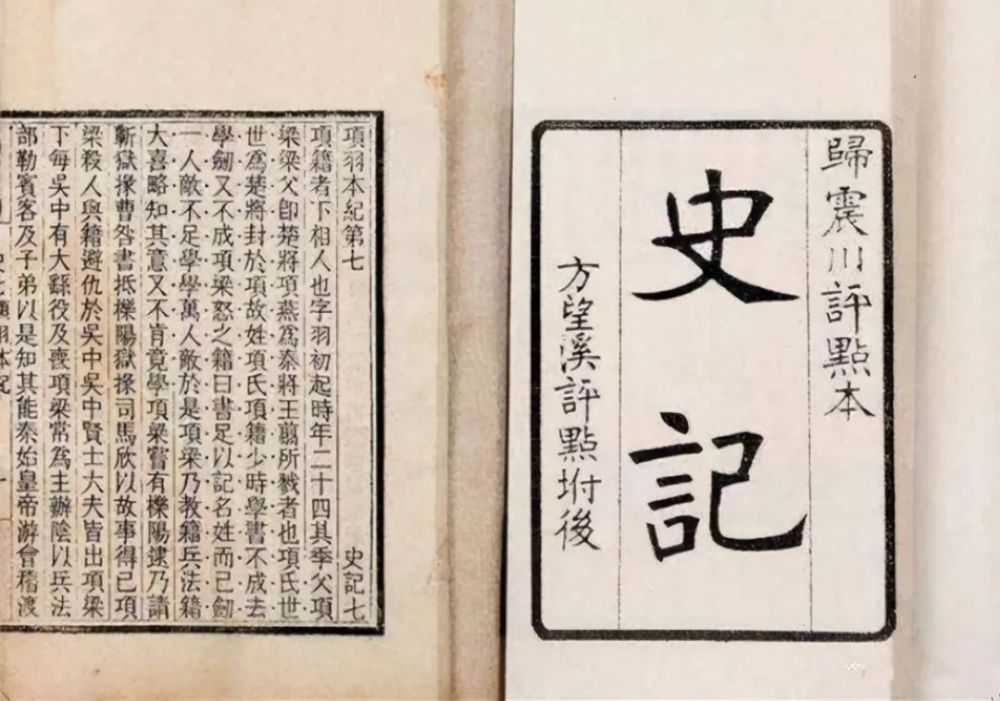 歸震川評點本
史記
方望溪評點坿後
項羽本紀第七 史記七
項籍者下相人也字羽初起時年二十四其季父項
梁梁父卽楚將項燕爲秦將王翦所戮者也項氏世
世爲楚將封於項故姓項氏項籍少時學書不成去
學劒又不成項梁怒之籍曰書足以記名姓而已劒
一人敵不足學學萬人敵於是項梁乃教籍兵法籍
大喜略知其意又不肯竟學項梁嘗有櫟陽逮乃請
蘄獄掾曹咎書抵櫟陽獄掾司馬欣以故事得已項
梁殺人與籍避仇於吳中吳中賢士大夫皆出項梁
下每吳中有大繇役及喪項梁常爲主辦陰以兵法
部勒賓客及子弟以是知其能秦始皇帝游會稽渡